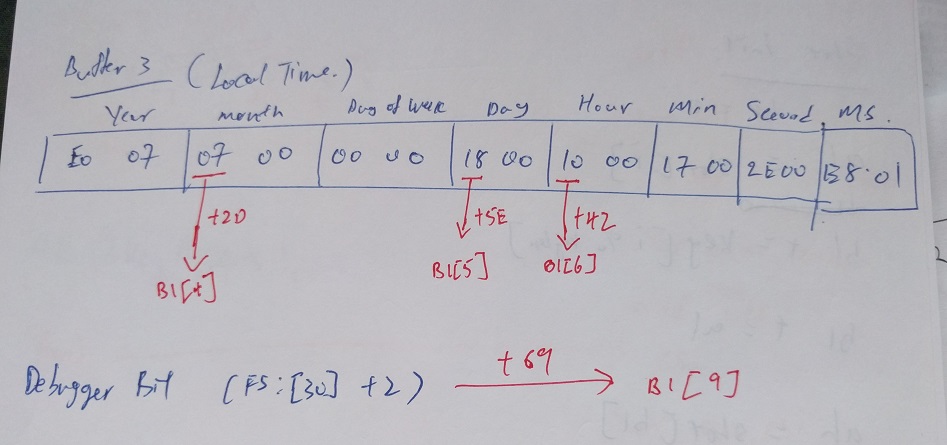 Buffer 3 (Local Time.)
Year month Day of Week Day Hour Min Second MS.
E0 07 07 00 00 00 18 00 10 00 17 00 2E00 B8·01
+20 +5E +42
B1[4] B1[5] B1[6]
+69
Debugger Bit (FS:[30] +2) B1[9]